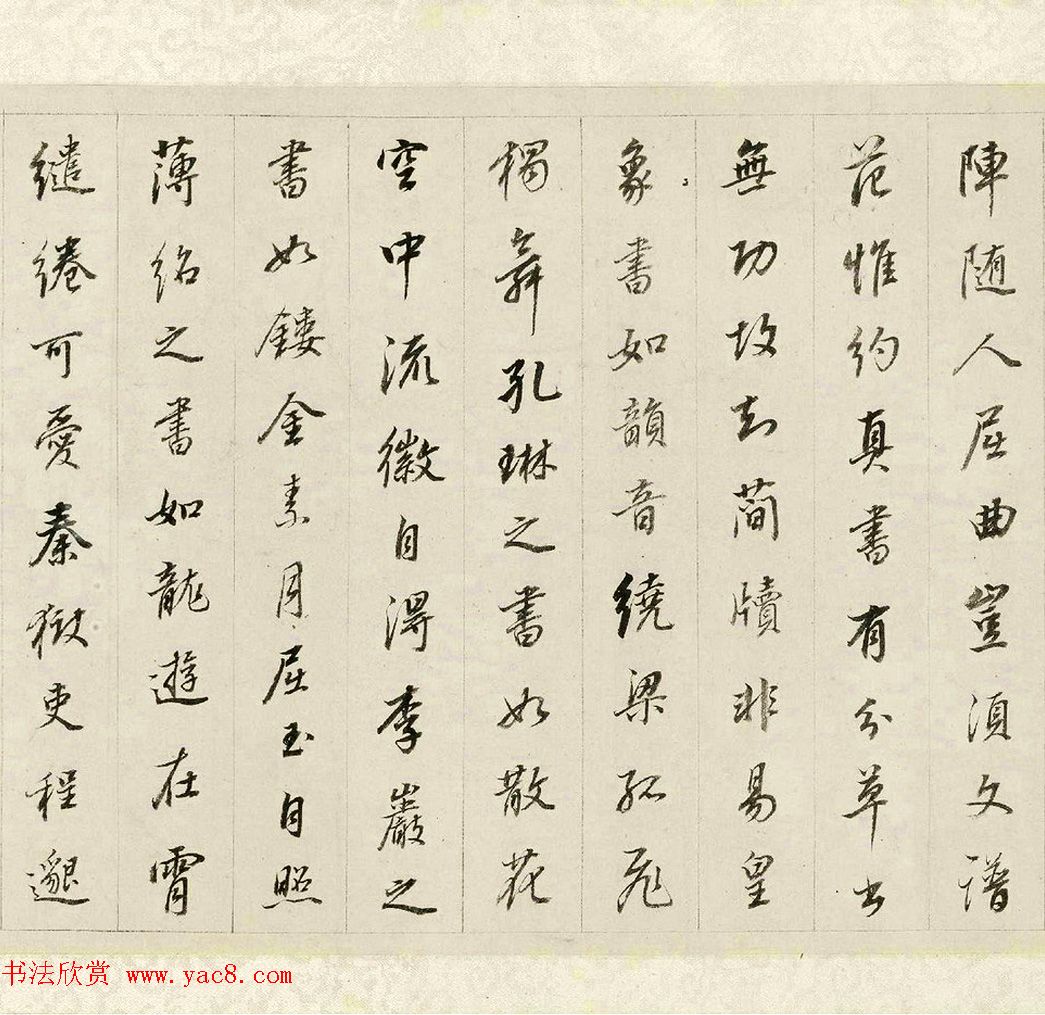 陣随人屈曲豈須文譜
范惟約真書有分草書
無功故知簡牘非易皇
象書如韻音繞梁孤飛
獨舞孔琳之書如散花
空中流徽自得李巖之
書如鏤金素月屈玉自照
薄紹之書如龍遊在霄
繾綣可愛秦獄吏程邈
书法欣赏 www.yac8.com